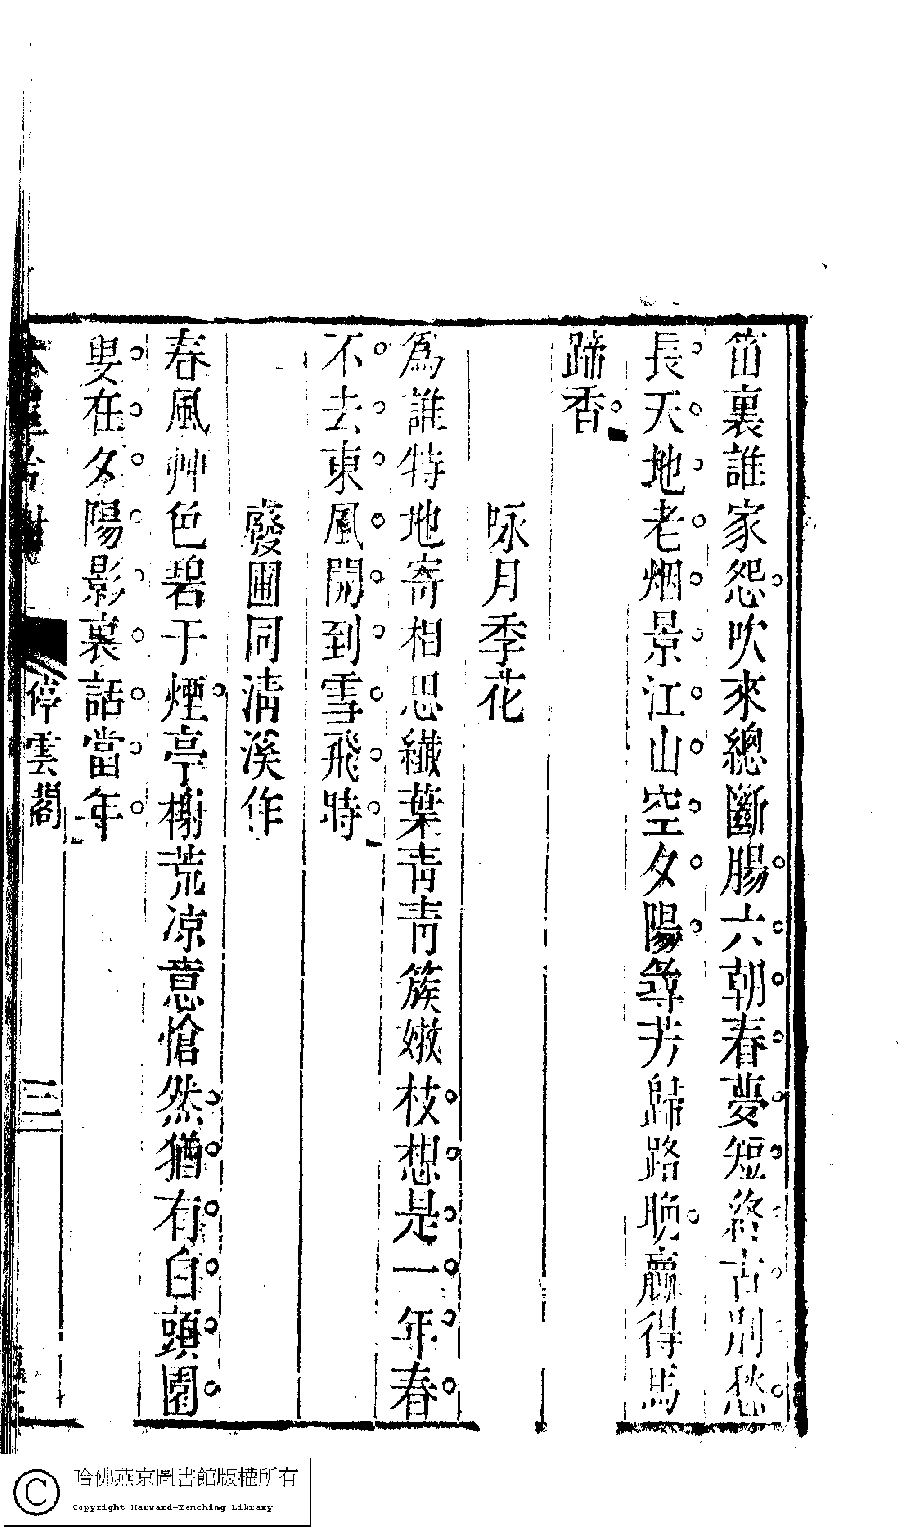 笛裏誰家怨吹來總斷腸六朝春夢短終古別愁
長天地老烟景江山空夕陽尋芳歸路晚贏得馬
蹄香
咏月季花
爲誰特地寄相思纎葉青青簇嫩枝想是一年春
不去東風開到雪飛時
廢圃同清溪作
春風艸色碧于煙亭榭荒凉意愴然猶有白頭園
叟在夕陽影裏話當年
停雲閣
三
哈佛燕京圖書館版權所有
Copyright Harvard-Yenching Library